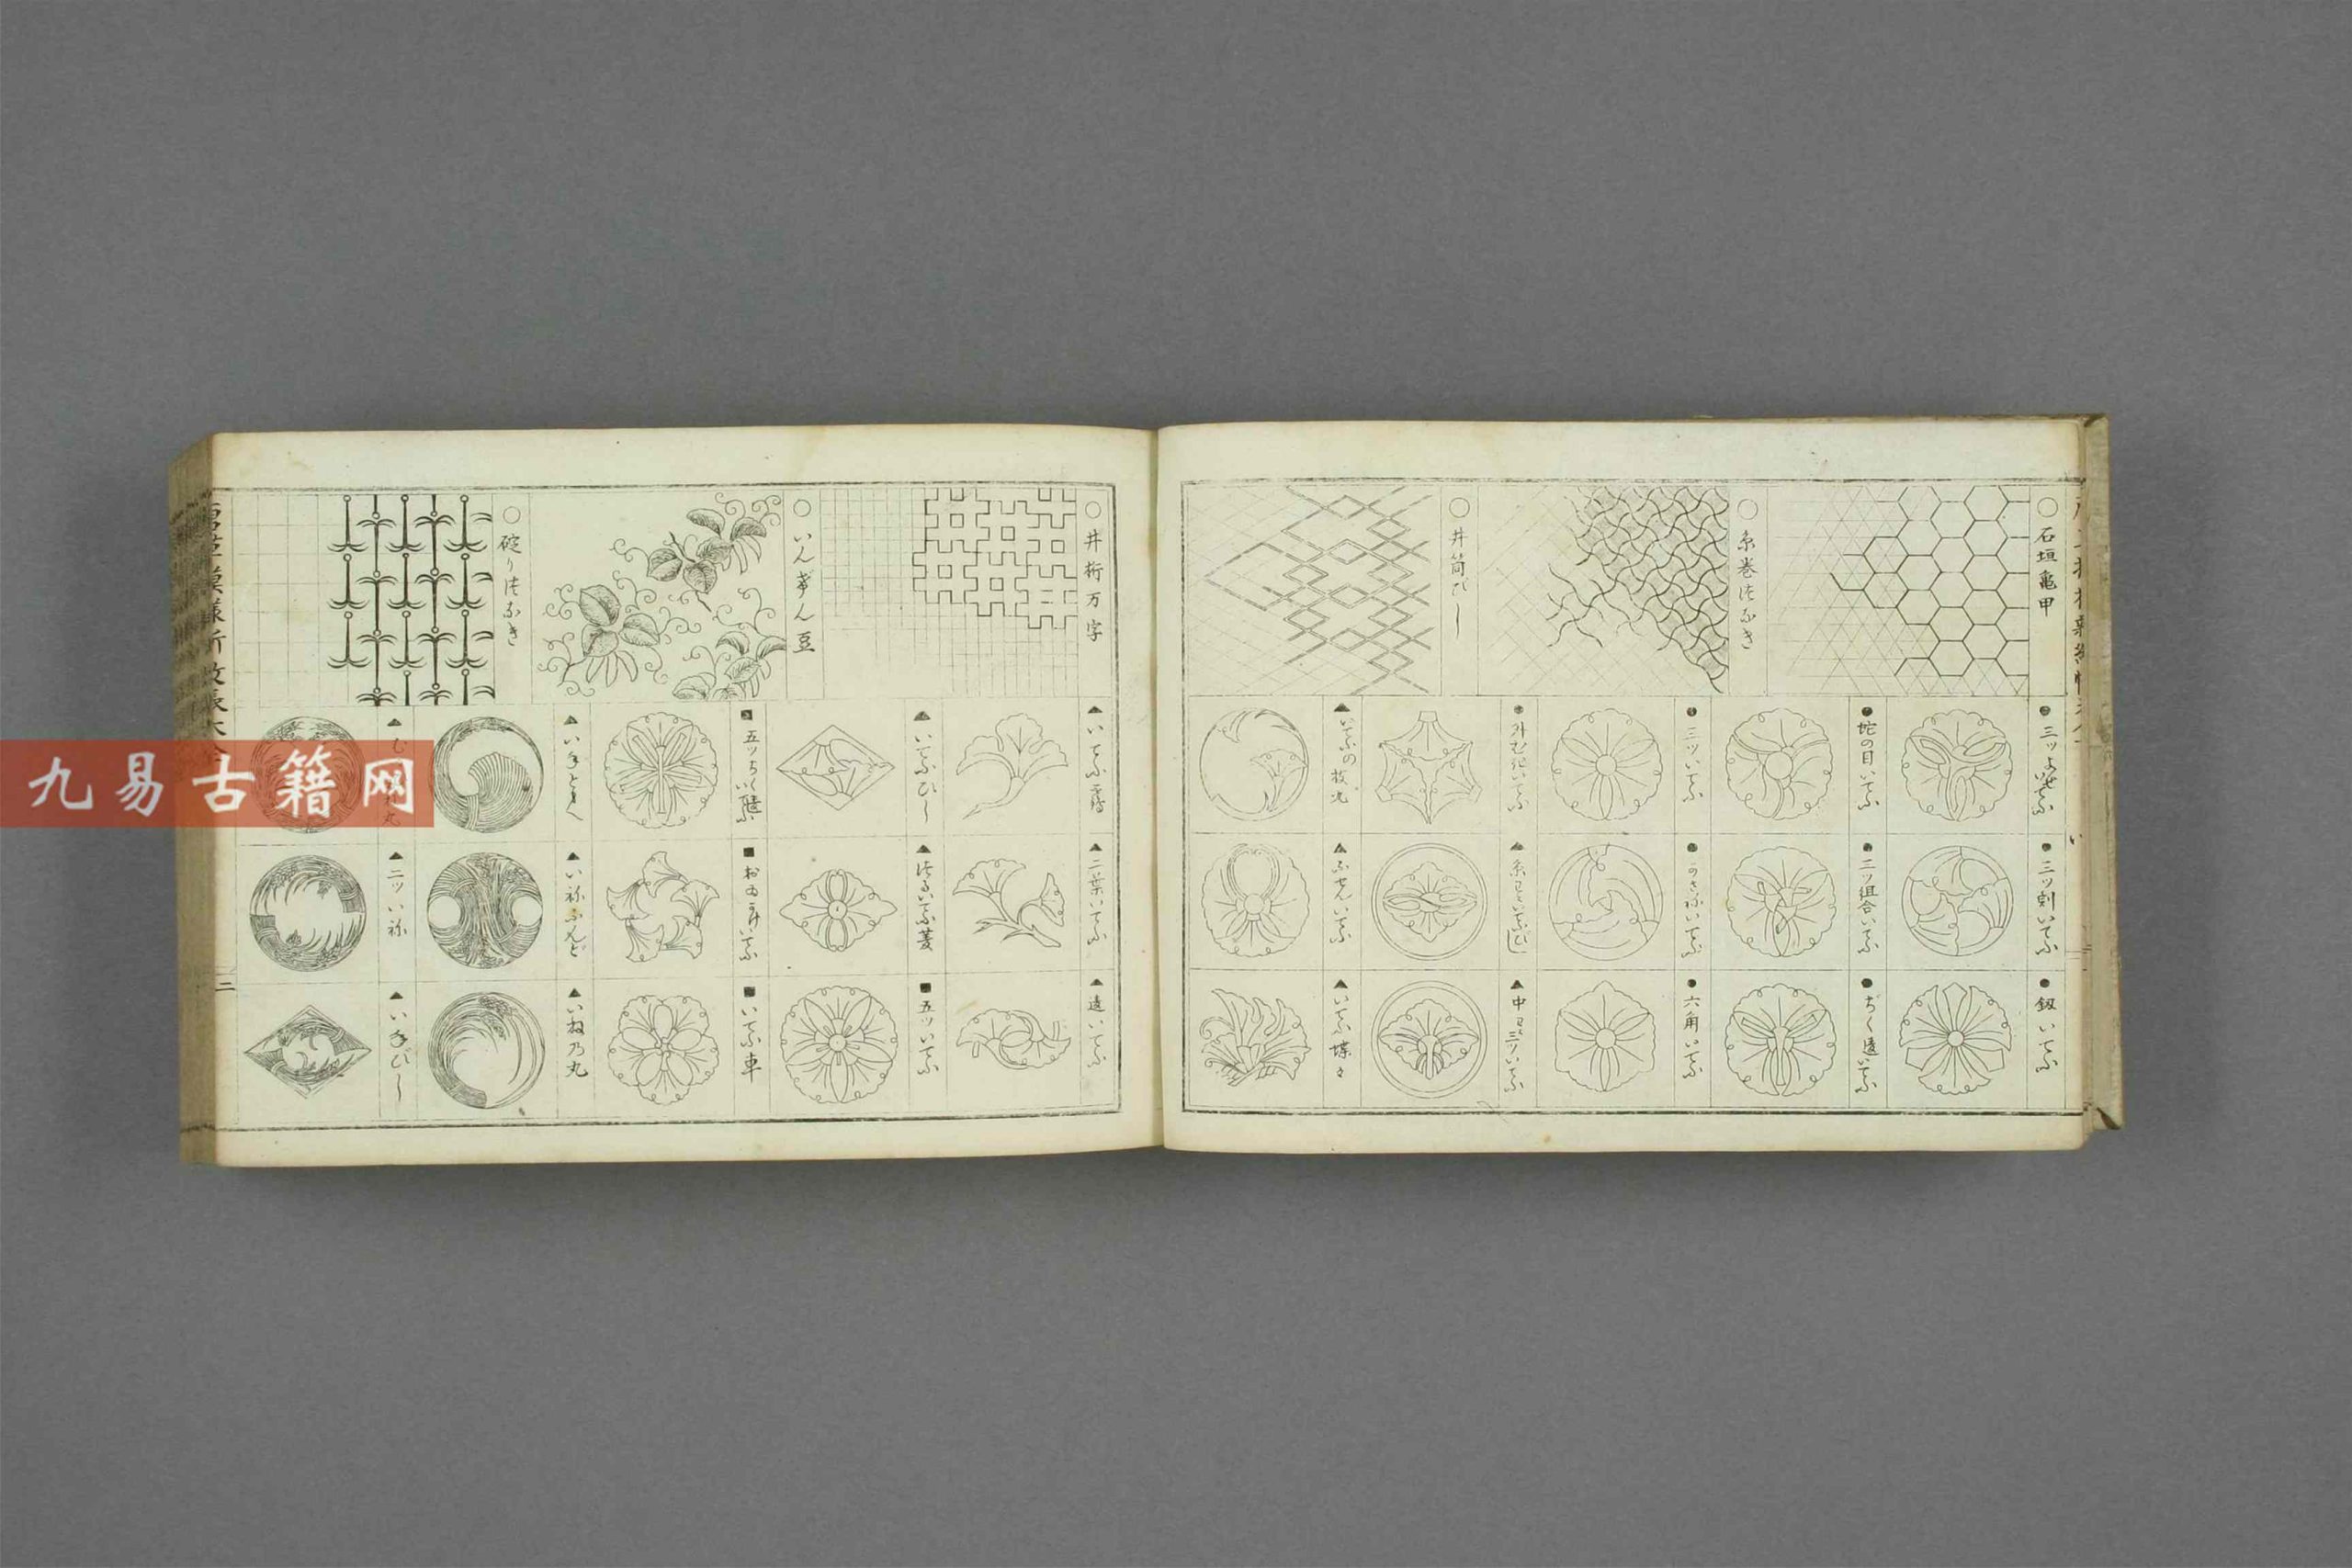 石垣亀甲
糸巻つなぎ
井筒びし
三ッよせいてふ
三ッ剣いてふ
釼いてふ
蛇の目いてふ
二ッ組合いてふ
ぢく違いてふ
三ッいてふ
かざぐるまいてふ
六角いてふ
外むきいてふ
中わ三ツいてふ
いてふの枝丸
ふせんいてふ
いてふ蝶々
井桁万字
いんげん豆
碇りつなぎ
二葉いてふ
違いてふ
いてふびし
つるいてふ菱
五ッいてふ
五ッぢく違いてふ
おゐかけいてふ
いてふ車
いねともへ
いねふんど
いねの丸
二ッいね
いねびし
二
九易古籍网